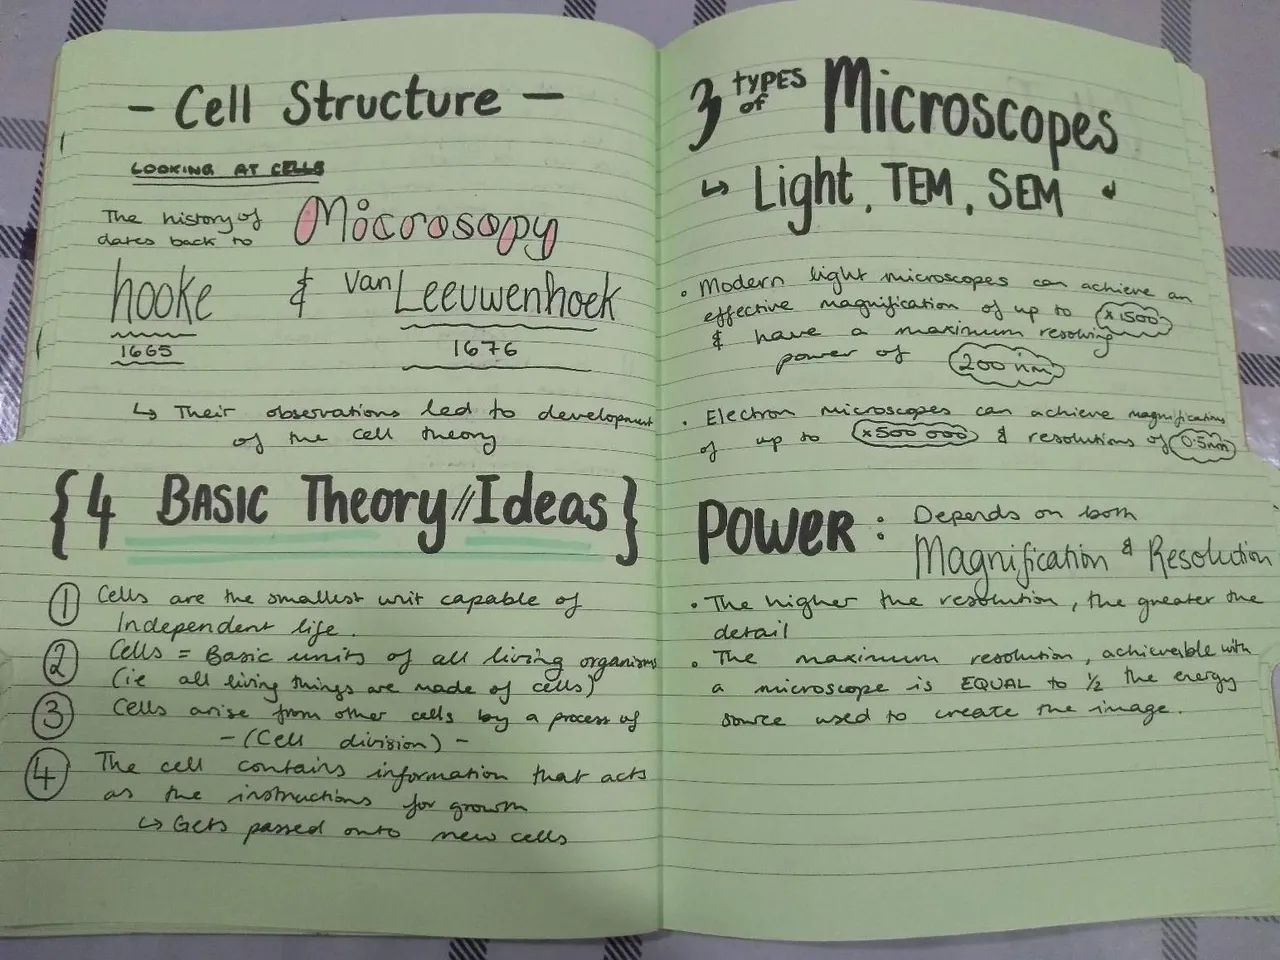 - Cell Structure -
LOOKING AT CELLS
The history of Microsopy
dates back to
hooke & Van Leeuwenhoek
1665 1676
↳ Their observations led to development
of the cell theory
{4 BASIC Theory // Ideas}
① Cells are the smallest unit capable of
Independent life.
② Cells = Basic units of all living organisms
(ie all living things are made of cells)
③ Cells arise from other cells by a process of
- (Cell division) -
④ The cell contains information that acts
as the instructions for growth
↳ Gets passed onto new cells
3 TYPES of Microscopes
↳ Light, TEM, SEM ↲
• Modern light microscopes can achieve an
effective magnification of up to x1500
& have a maximum resolving
power of 200nm
• Electron microscopes can achieve magnifications
of up to x500 000 & resolutions of 0.5nm
POWER : Depends on both
Magnification & Resolution
• The higher the resolution, the greater the
detail
• The maximum resolution, achieveible with
a microscope is EQUAL to ½ the energy
source used to create the image.